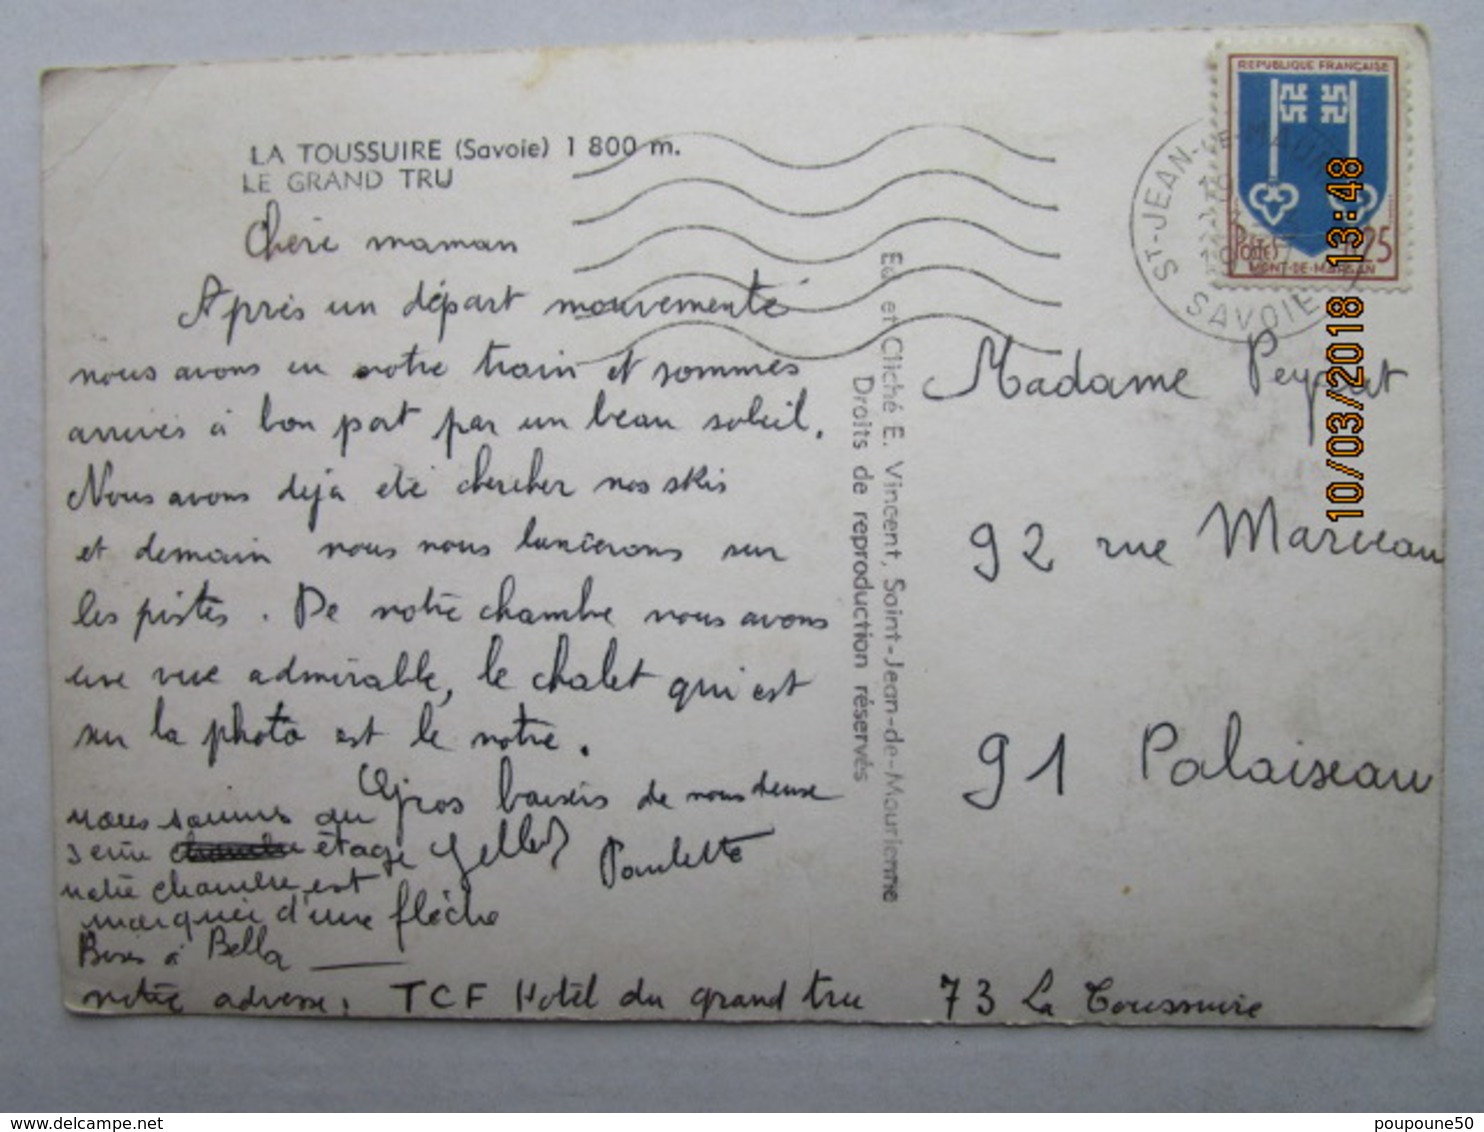 LA TOUSSUIRE (Savoie) 1 800 m.
LE GRAND TRU
Chère maman
Après un départ mouvementé
nous avons eu notre train et sommes
arrivés à bon port par un beau soleil.
Nous avons déjà été chercher nos skis
et demain nous nous lancerons sur
les pistes. De notre chambre nous avons
une vue admirable, le chalet qui est
sur la photo est le notre.
Gros baisers de nous deux
Paulette
nous sommes au
3 eme étage
notre chambre est
marquée d'une flèche
Bises à Bella
notre adresse : TCF Hotel du grand tru 73 La Toussuire
Ed. et Cliché E. Vincent, Saint-Jean-de-Maurienne
Droits de reproduction réservés
REPUBLIQUE FRANÇAISE
POSTES 0,25
MONT-DE-MARSAN
ST-JEAN-DE-MAUR
SAVOIE
Madame
92 rue Marceau
91 Palaiseau
10/03/2018 13:48
poupoune50